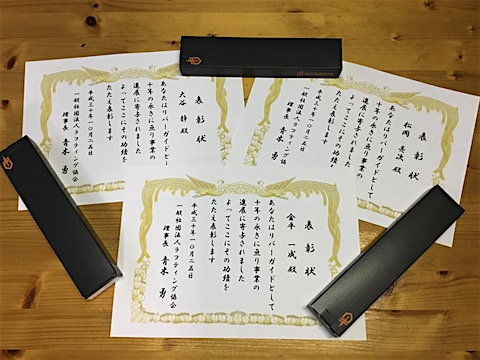 表彰状
大谷 静 殿
あなたはリバーガイドとし
十年の永きに亘り事業の
進展に寄与されました
よってここにその功績を
たたえ表彰します
平成三十年一〇月二五日
一般社団法人ラフティング協会
理事長 青木 勇
表彰状
松岡 亮次 殿
あなたはリバーガイドとして
十年の永きに亘り事業の
進展に寄与されました
よってここにその功績を
たたえ表彰します
平成三十年一〇月二五日
一般社団法人ラフティング協会
理事長 青木 勇
表彰状
金平 一成 殿
あなたはリバーガイドとして
十年の永きに亘り事業の
進展に寄与されました
よってここにその功績を
たたえ表彰します
平成三十年一〇月二五日
一般社団法人ラフティング協会
理事長 青木 勇